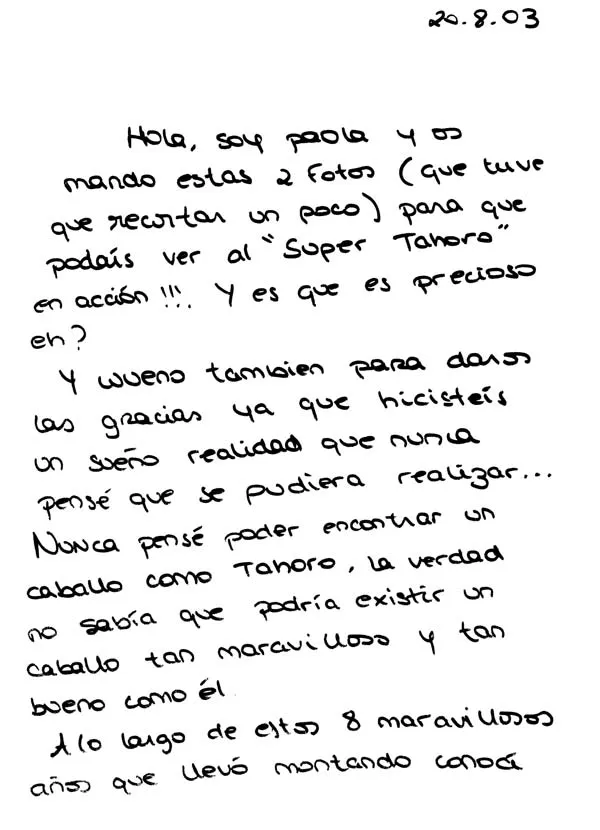 20.8.03
Hola, soy paola y os
mando estas 2 Fotos (que tuve
que recortar un poco) para que
podáis ver al "Super Tahoro"
en acción!!!. Y es que es precioso
eh?
Y wueno tambien para daros
las gracias ya que hicisteís
un sueño realidad que nunca
pensé que se pudiera realizar...
Nunca pensé poder encontrar un
caballo como Tahoro, la verdad
no sabía que podría existir un
caballo tan maravilloso y tan
bueno como él.
A lo largo de estos 8 maravillosos
años que llevó montando conocí